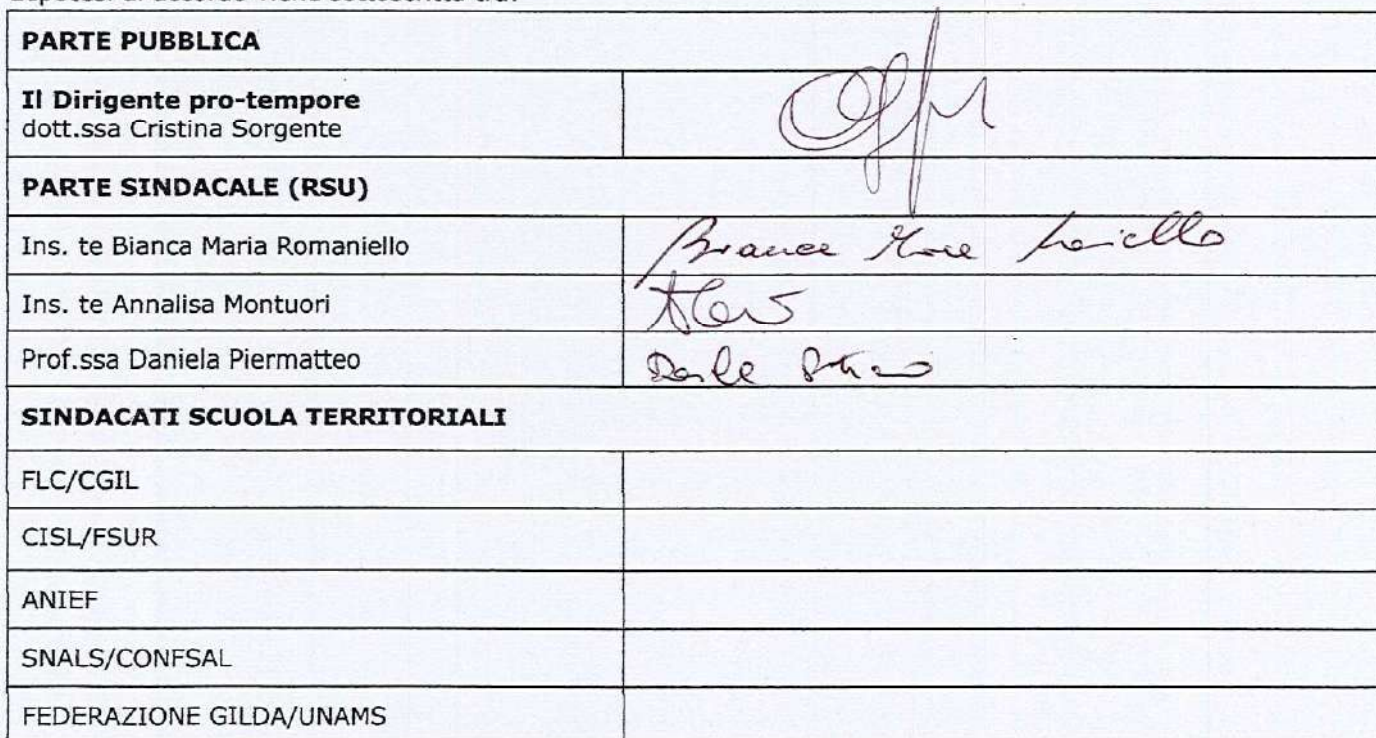 PARTE PUBBLICA
Il Dirigente pro-tempore
dott.ssa Cristina Sorgente
PARTE SINDACALE (RSU)
Ins. te Bianca Maria Romaniello
Ins. te Annalisa Montuori
Prof.ssa Daniela Piermatteo
SINDACATI SCUOLA TERRITORIALI
FLC/CGIL
CISL/FSUR
ANIEF
SNALS/CONFSAL
FEDERAZIONE GILDA/UNAMS